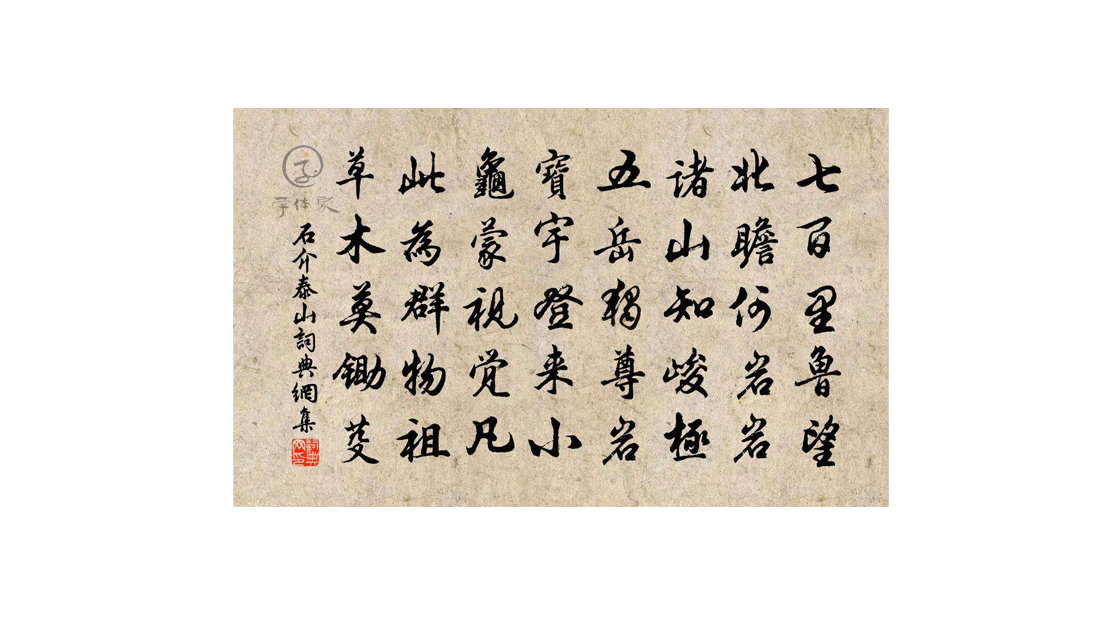 七百里魯望
北瞻何岩岩
諸山知峻極
五岳獨尊岩
寶宇登来小
龜蒙視覚凡
此為群物祖
草木莫鋤芟
石介泰山詞典網集
字体家